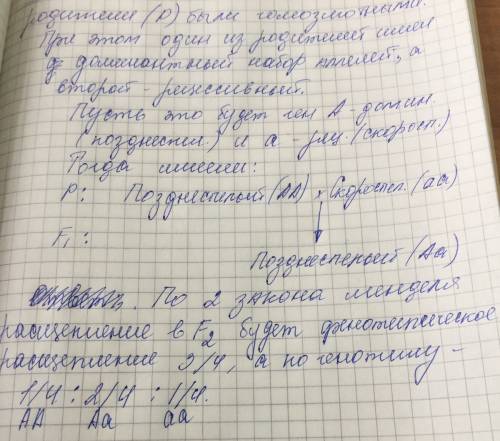 родители (P) были гомозиготными.
При этом один из родителей имел
доминантный набор аллелей, а
второй - рецессивный.
Пусть это будет ген А - домин.
(позднеспел.) и а - рец. (скоросп.)
Тогда имеем:
P: Позднеспелый (АА) × Скороспел. (аа)
F₁:
Позднеспелый (Аа)
. По 2 закона менделя
расщепление в F₂ будет фенотипическое
расщепление 3/4, а по генотипу -
1/4 : 2/4 : 1/4.
АА Аа аа